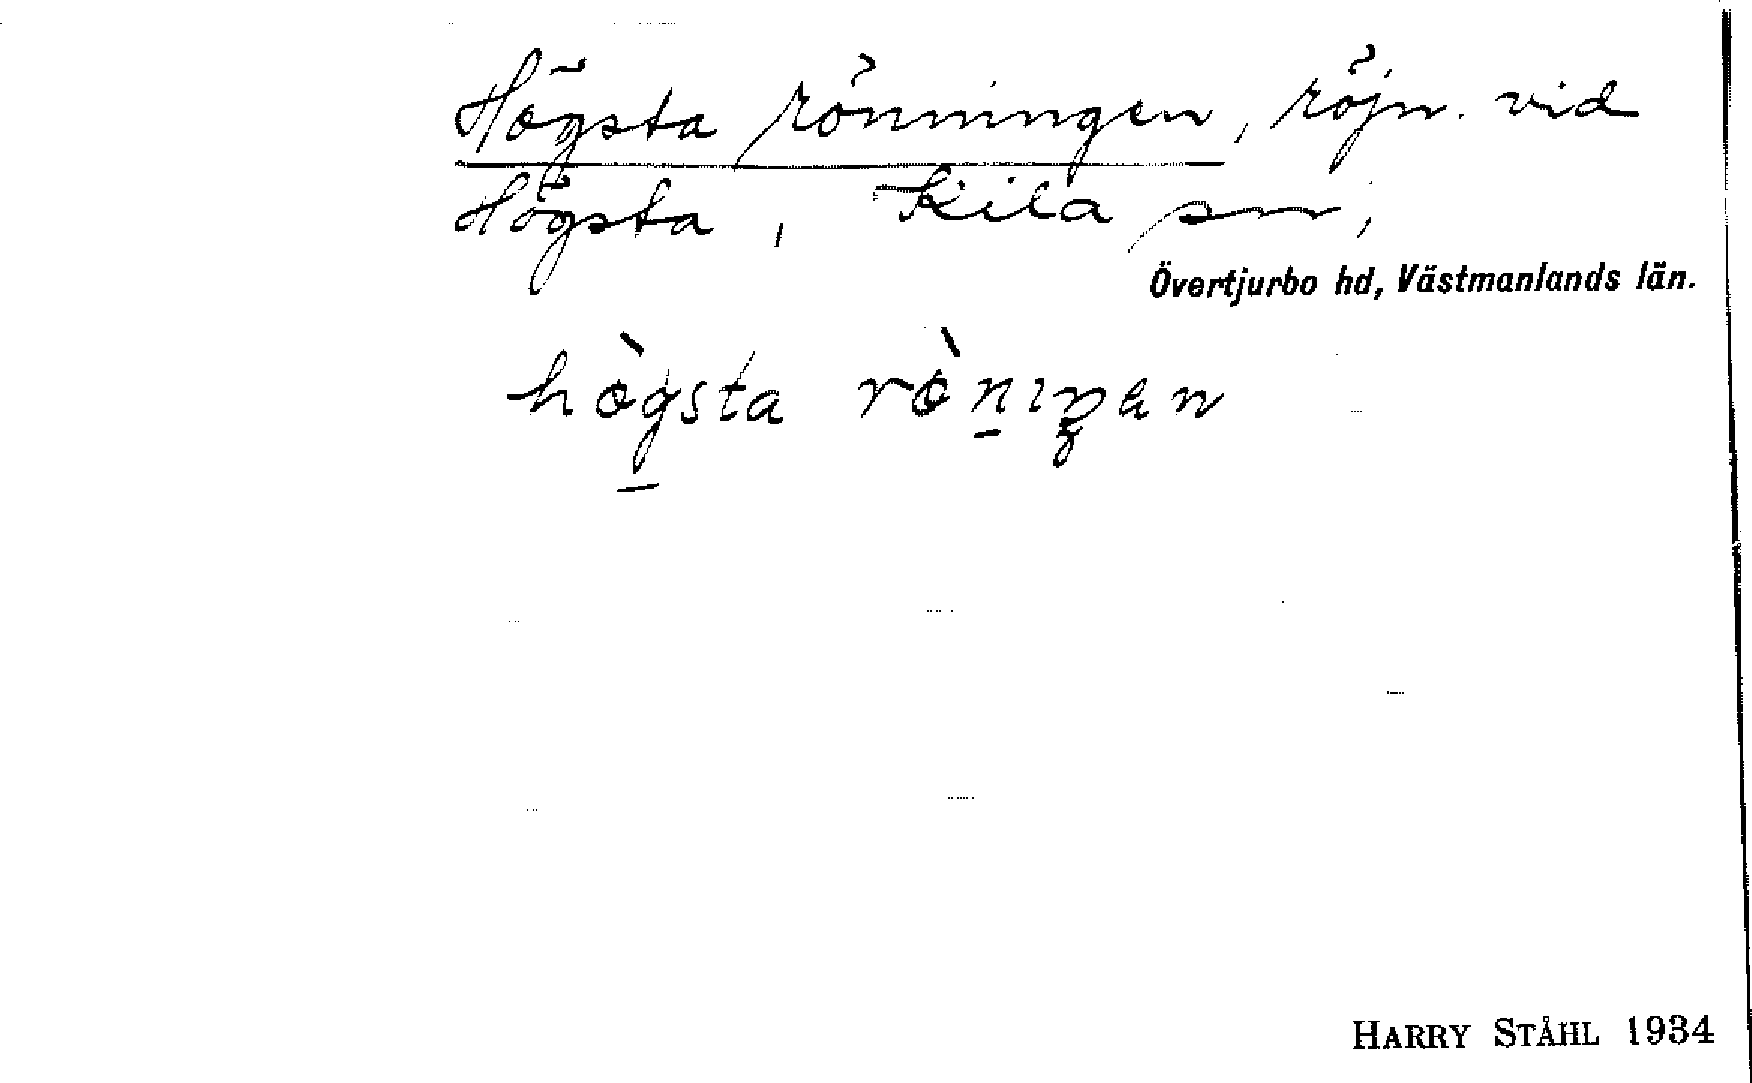 Högsta rönningen, röjn. vid
Högsta, Kila sn,
Övertjurbo hd, Västmanlands län.
hö̀g̠sta rö̀n̠ıŋen
HARRY STÅHL 1934